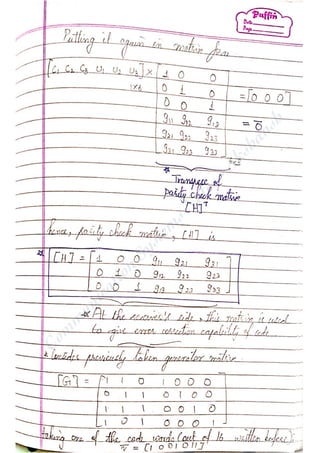 Puffin
Date
Page
Putting it again in matrix form
[C₁ C₂ C₃ U₁ U₂ U₃] × [ 1 0 0
1×6 0 1 0 = [0 0 0]
0 0 1
g₁₁ g₁₂ g₁₃ = 0̄
g₂₁ g₂₂ g₂₃
g₃₁ g₃₂ g₃₃ ]6×3
* Transpose of
parity check matrix
[H]ᵀ
hence, parity check matrix, [H] is
* [H] = [ 1 0 0 g₁₁ g₂₁ g₃₁
0 1 0 g₁₂ g₂₂ g₃₂
0 0 1 g₁₃ g₂₃ g₃₃ ]
* At the receiver's side, this matrix is used
to give error correction capability of code
* Consider previously taken generator matrix
[G] = [ 1 1 0 1 0 0 0
0 1 1 0 1 0 0
1 1 1 0 0 1 0
1 0 1 0 0 0 1 ]
taking one of the code words (out of 16 written before):
v̄ = [1 0 0 1 0 1 1]